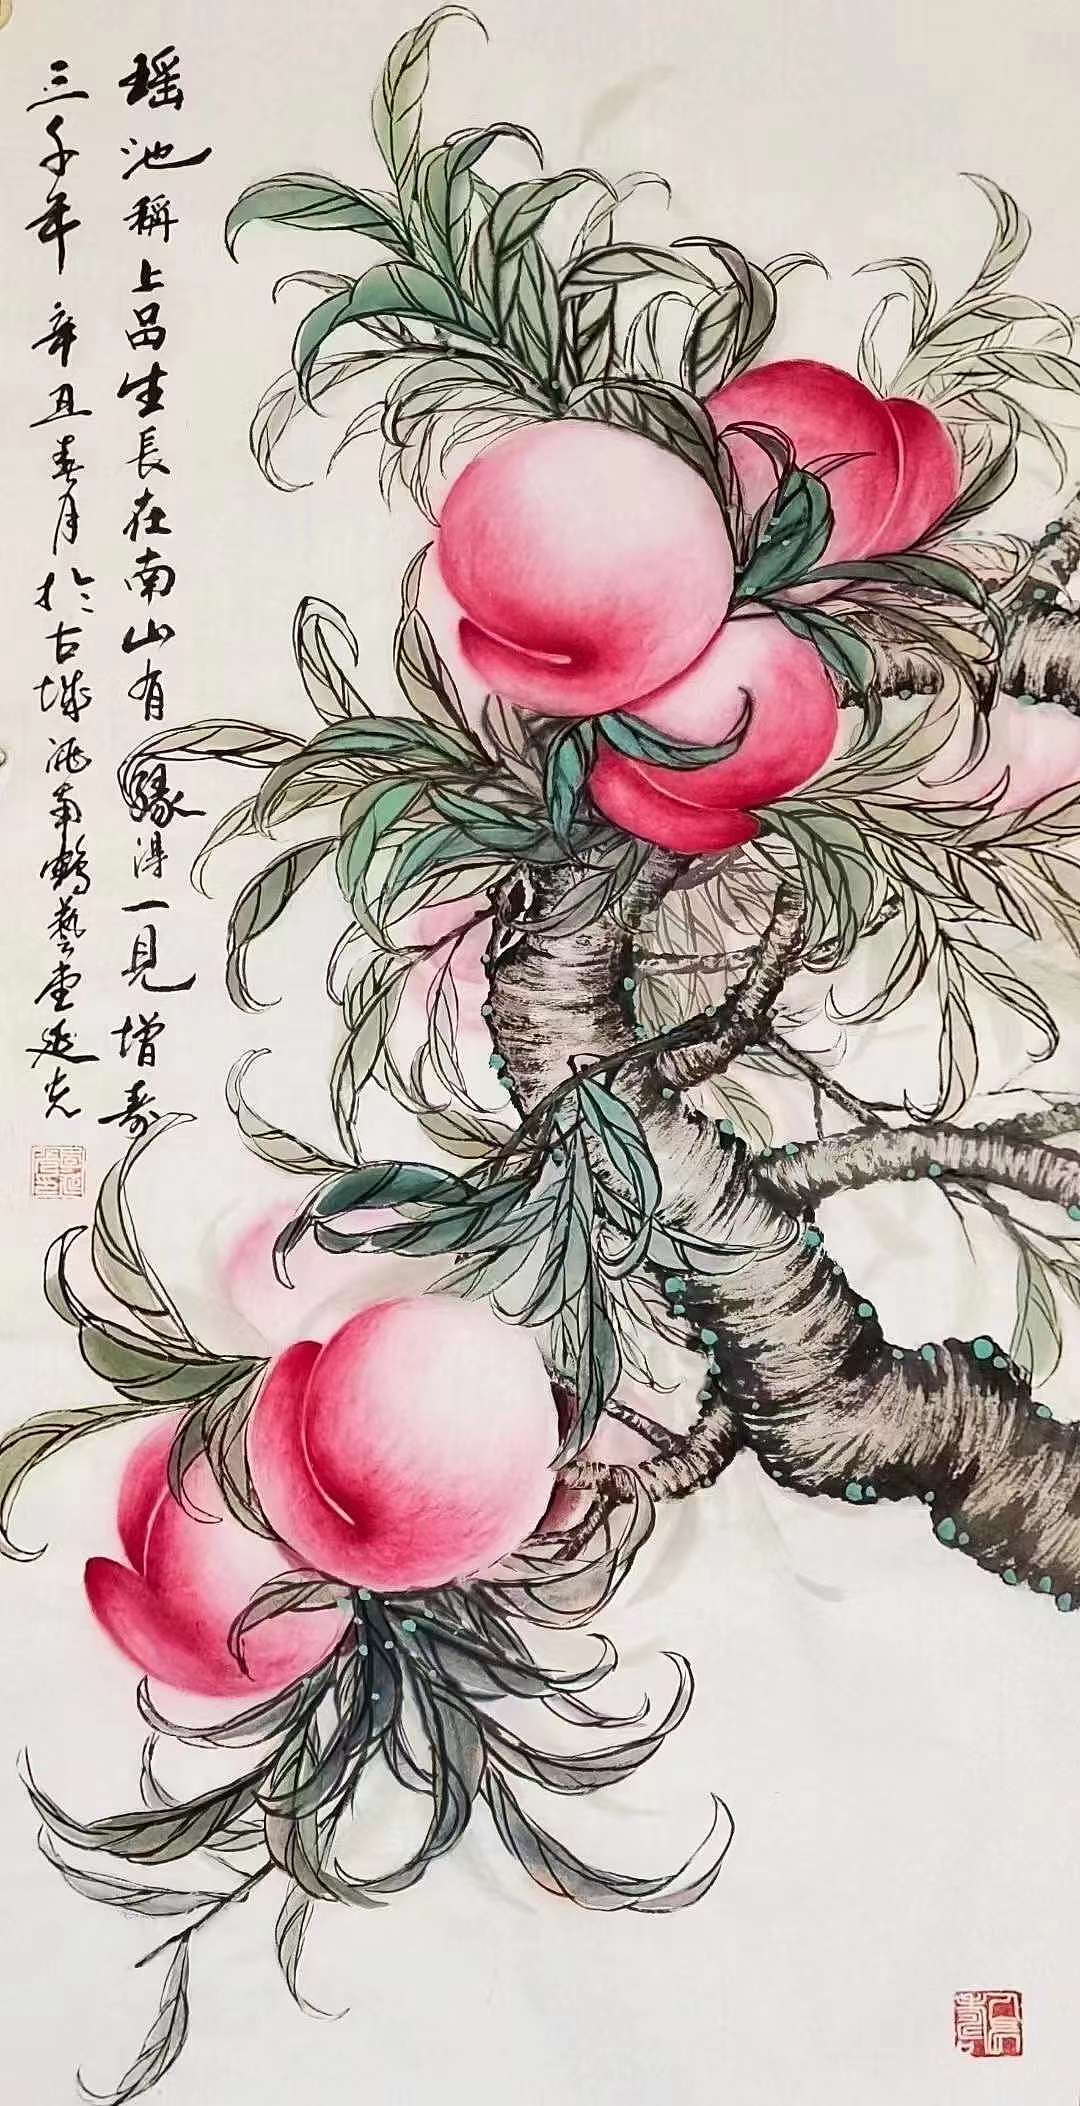 瑶池稱上品生長在南山有緣得一見增壽
三千年 辛丑春月於古城洮南鶴藝堂延光